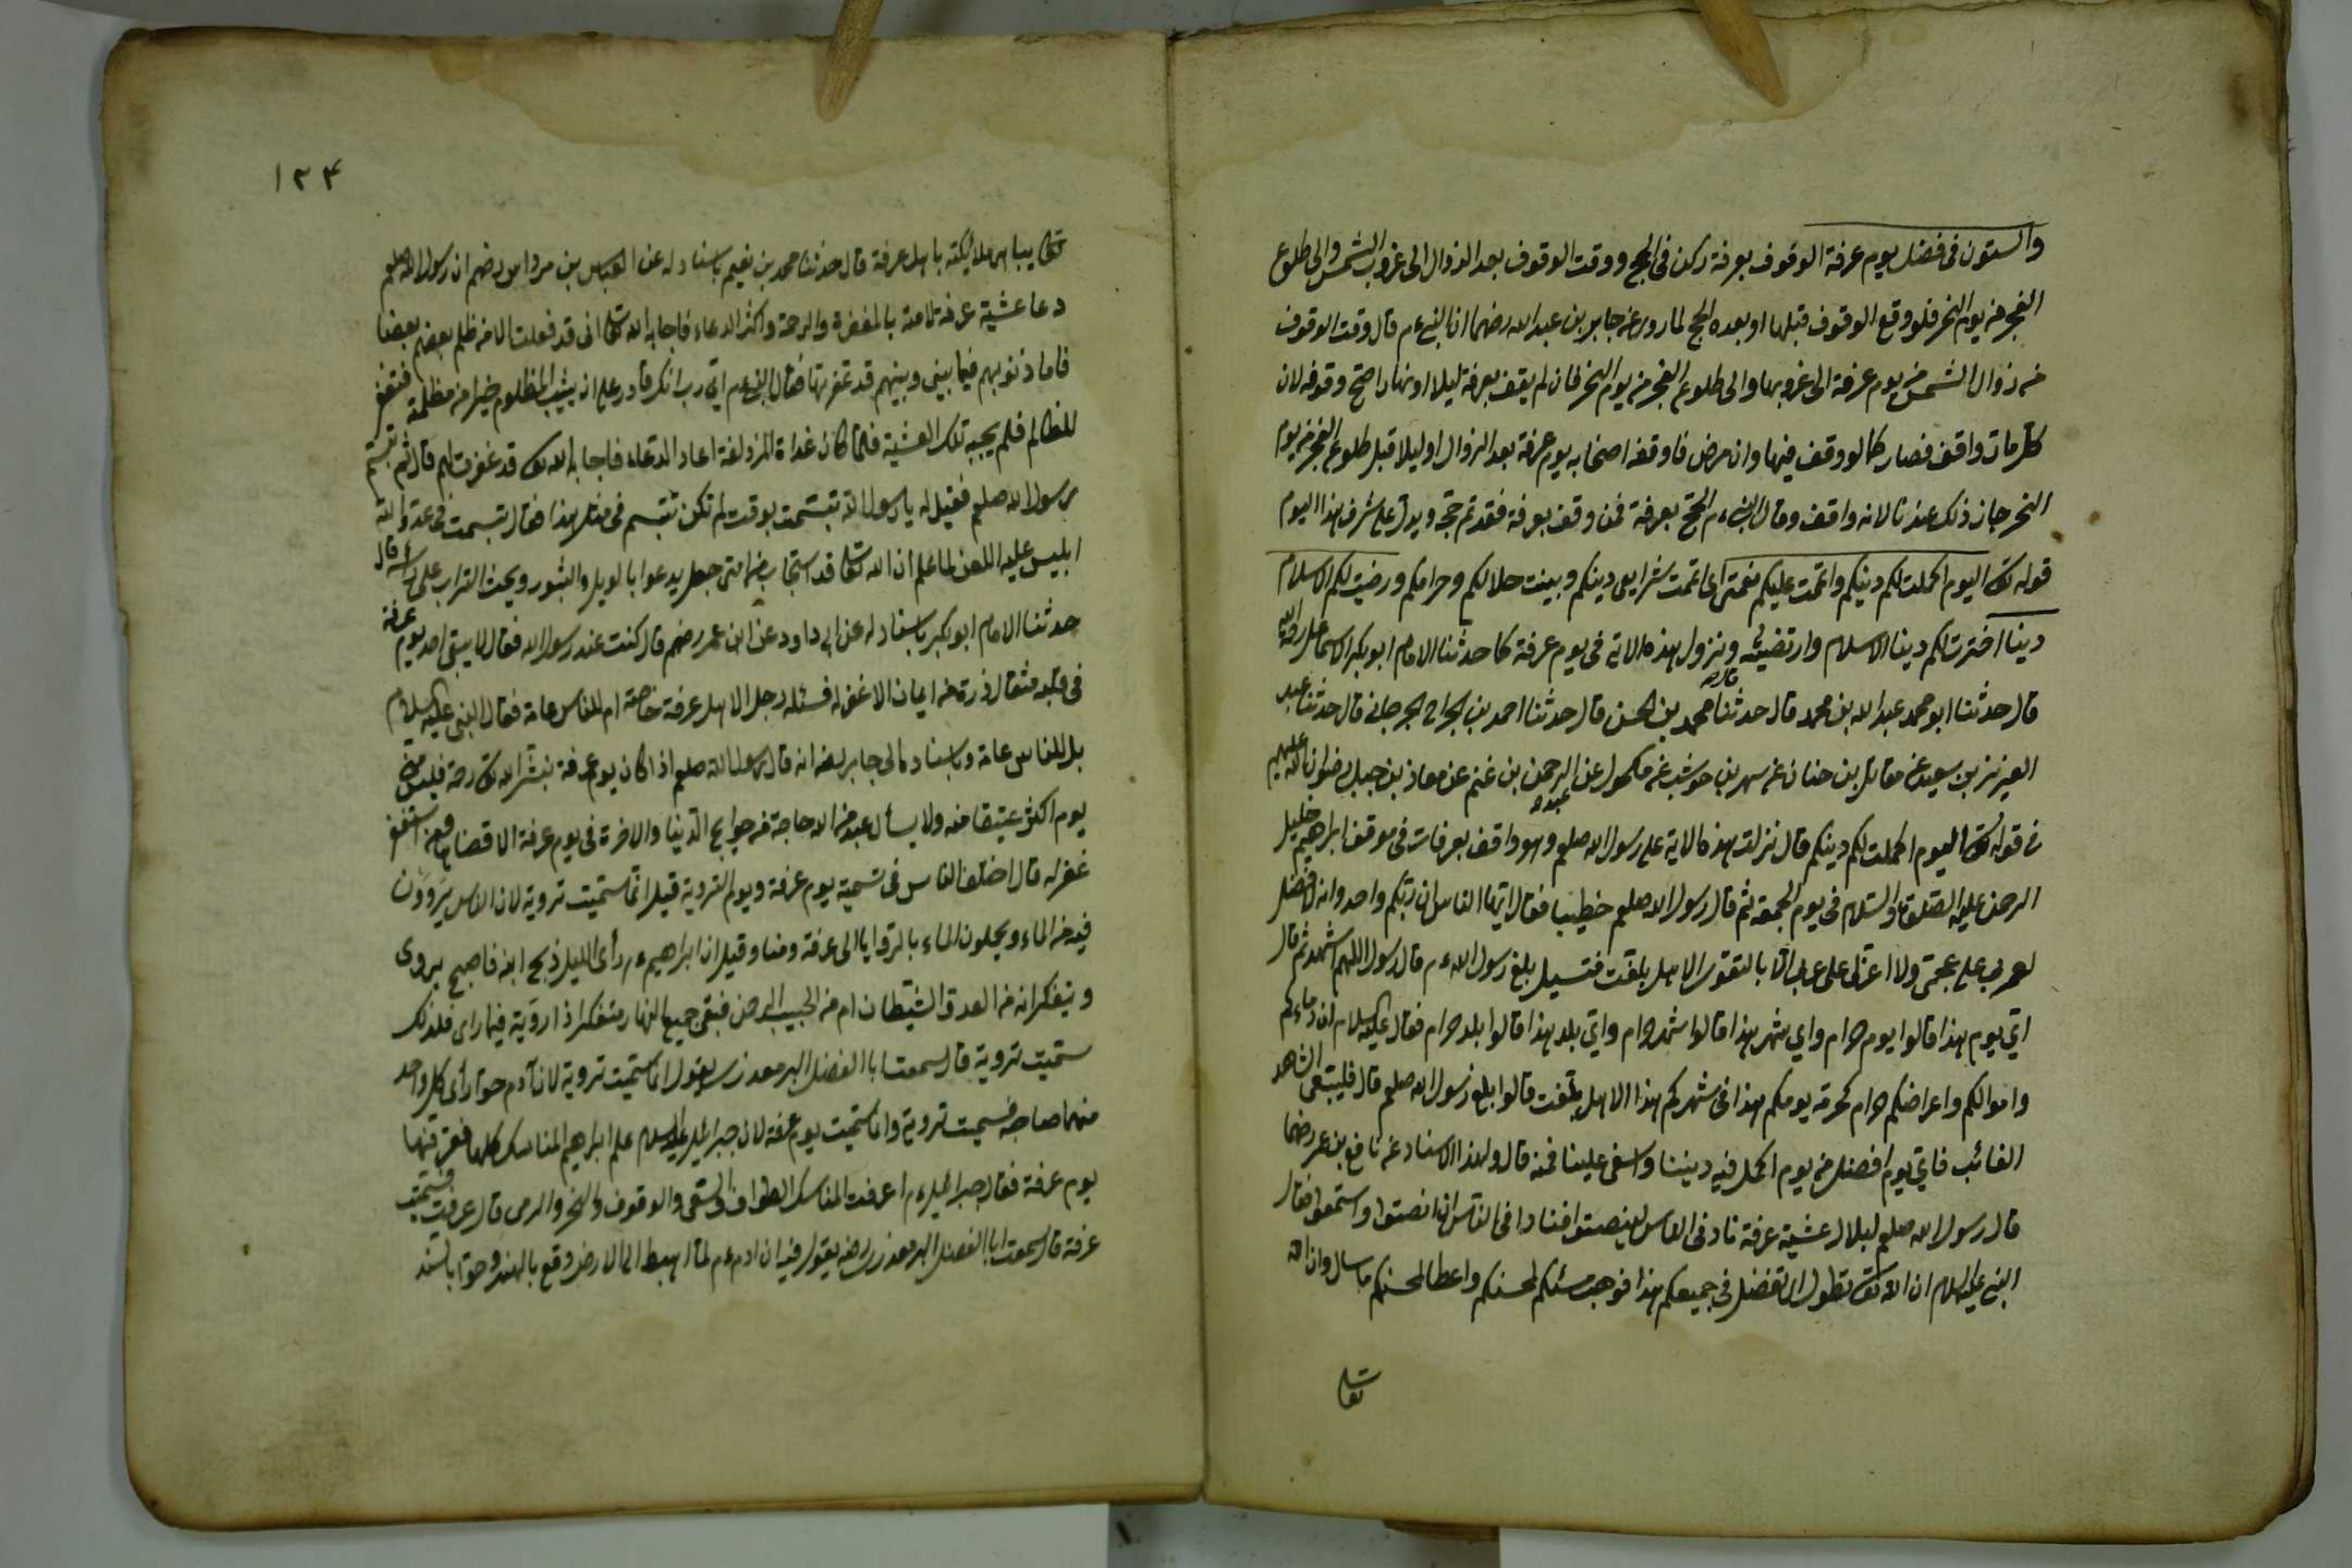 والستون فى فضل يوم عرفة الوقوف بعرفة ركن فى الحج ووقت الوقوف بعد الزوال الى غروب الشمس والى طلوع
الفجر من يوم النحر فلو وقع الوقوف قبلها او بعده الحج لما روى عن جابر بن عبد الله رضهما ان النبى ءم قال وقت الوقوف
من زوال الشمس من يوم عرفة الى غروبها والى طلوع الفجر من يوم النحر فان لم يقف بعرفة ليلا او نهارا صح وقوفه لان
كل مات واقف فصار كما لو وقف فيها وان مرض فاوقفه اصحابه يوم عرفة بعد الزوال او ليلا قبل طلوع الفجر من يوم
النحر جاز ذلك عندنا لانه واقف وقال النبى ءم الحج بعرفة فمن وقف بعرفة فقد تم حجه ويدل على شرف هذا اليوم
قوله تعالى اليوم اكملت لكم دينكم واتممت عليكم نعمتى اى اتممت شرايع دينكم وبينت حلالكم وحرامكم ورضيت لكم الاسلام
دينا اخترت لكم دينا الاسلام وارتضيته ونزول هذه الاية فى يوم عرفة كما حدثنا الامام ابو بكر الاسماعيلى رحمه الله
قال حدثنا ابو محمد عبد الله بن محمد قال حدثنا محمد بن الحسن قال حدثنا احمد بن الجراح الجرجانى قال حدثنا عبد
العزيز بن سعيد عن مقاتل بن حنان عن سهر بن حوشب عن مكحول عن عبد الرحمن بن غنم عن معاذ بن جبل رضوان الله عليهم
فى قوله تعالى اليوم اكملت لكم دينكم قال نزلت هذه الاية على رسول الله صلعم وهو واقف بعرفات فى موقف ابراهيم خليل
الرحمن عليه الصلوة والسلام فى يوم الجمعة ثم قال رسول الله صلعم خطيبا فقال ايها الناس ان ربكم واحد وانه لا فضل
لعربى على عجمى ولا اعجمى على عربى الا بالتقوى الا هل بلغت فتسيل بلغ رسول الله ءم قال رسول اللهم اشهد ثم قال
اي يوم هذا قالوا يوم حرام واي شهر هذا قالوا شهر حرام واي بلد هذا قالوا بلد حرام فقال عليه السلام ان دماءكم
واموالكم واعراضكم حرام كحرمة يومكم هذا فى شهركم هذا الا هل بلغت قالوا بلغ رسول الله صلعم قال فليبلغ الشاهد
الغائب فاي يوم افضل من يوم اكمل فيه ديننا واسغى علينا فمنه قال ولهذا الاسناد عن نافع بن عمر رضهما
قال رسول الله صلعم لبلال عشية عرفة ناد فى الناس لينصتوا فنادا فى الناس ان انصتوا واستمعوا فقال
النبى عليه السلام ان الله تعالى تطول اى تفضل فى جميعكم هذا فوهب مسئكم لمحسنكم واعطا لمحسنكم ما سال وان الله
تعالى
١٣٤
تعالى يباهى ملايكته باهل عرفة قال حدثنا محمد بن نعيم باسناد له عن العباس بن مرداس رضهم ان رسول الله صلعم
دعا عشية عرفة لامته بالمغفرة والرحمة واكثر الدعاء فاجابه الله تعالى انى قد فعلت الا من ظلم بعضهم بعضا
فاما ذنوبهم فيما بينى وبينهم قد غفرتها فقال النبى ءم اي رب انك قادر على ان يثيب المظلوم خيرا من مظلمة فتغفر
للظالم فلم يجبه تلك العشية فلما كان غداة المزدلفة اعاد الدعاء فاجابه الله تعالى قد غفرت لهم قال ثم تبسم
رسول الله صلعم فقيل له يا رسول الله تبسمت بوقت لم تكن تتبسم فى مثل هذا فقال تبسمت فى عدو الله
ابليس عليه اللعن لما علم ان الله تعالى قد استجاب من امتى جعل يدعوا بالويل والثبور ويحث التراب على رأسه قال
حدثنا الامام ابو بكر باسناد له عن ابى داود عن ابن عمر رضهم قال كنت عند رسول الله فقال لا يبقى احد يوم عرفة
فى قلبه مثقال ذرة من ايمان الا غفر له فسئله رجل الا هل عرفة خاصة ام للناس عامة فقال النبى عليه السلام
بل للناس عامة وباسناده الى جابر رضه انه قال رسول الله صلعم اذا كان يوم عرفة ينشر الله تعالى رحمة فليس من
يوم اكثر عتيقا منه ولا يسأل عبد من الله حاجة من حوايج الدينا والاخرة فى يوم عرفة الا قضاها ومن استغفر
غفر له قال اختلف الناس فى تسمية يوم عرفة ويوم التروية قيل انما سميت تروية لان الناس يتروون
فيه من الماء ويحملون الماء بالروايا الى عرفة ومنا وقيل ان ابراهيم ءم رأى الليل ذبح ابنه فاصبح يروى
ويتفكر انه من العدو الشيطان ام من الحبيب الرحمن فبقى جميع النهار متفكرا ذا روية فيما راى فلذلك
سميت تروية قال سمعت ابا الفضل البرمعذرى يقول انما سميت تروية لان آدم حوا رأى كل واحد
منهما صاحبه فسميت تروية وانما سميت يوم عرفة لان جبرائيل عليه السلام علم ابراهيم المناسك كلها فعرفتها
يوم عرفة فقال جبرائيل ءم اعرفت المناسك الطواف والسعى والوقوف والنحر والرمى قال عرفت فسميت
عرفة قال سمعت ابا الفضل البرمعذرى رضه يقول فيه ان ادم ءم لما اهبط الى الارض وقع بالهند وحوا بالسند